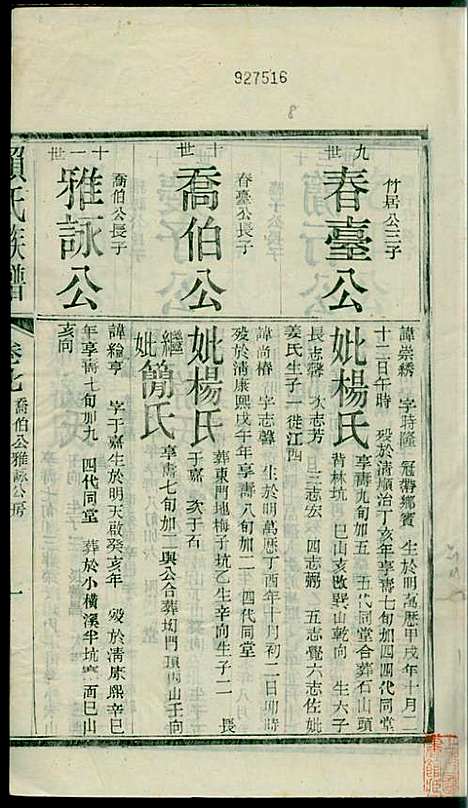 927516
8
九世
竹居公三子
春臺公
諱崇綉 字時隆 冠帶鄉賓 生於明萬歷甲戌年十月二
十三日午時 歿於清順治丁亥年享壽七旬加四四代同堂
妣楊氏 享壽九旬加五 五代同堂合葬石山頭
背林坑 巳山亥改巽山乾向 生六子
長志馨 次志芳 三志宏 四志弼 五志覺六志佐妣
姜氏生子一徙江西
十世
春臺公長子
喬伯公
諱尚椿 字志馨 生於明萬歷丁酉年十月初二日卯時
歿於清康熙戊午年享壽八旬加二 四代同堂
妣楊氏 葬東門地梅子坑乙生辛向生子二 長
于嘉 次于石
繼妣簡氏 享壽七旬加二與公合葬坳門頂酉山壬向
十一世
喬伯公長子
雅詠公
諱綸亨 字于嘉生於明天啟癸亥年 歿於清康熙辛巳
年享壽七旬加九 四代同堂 葬於小橫溪半坑 面巳山
亥向
賴氏族譜 卷之 喬伯公雅詠公房 一